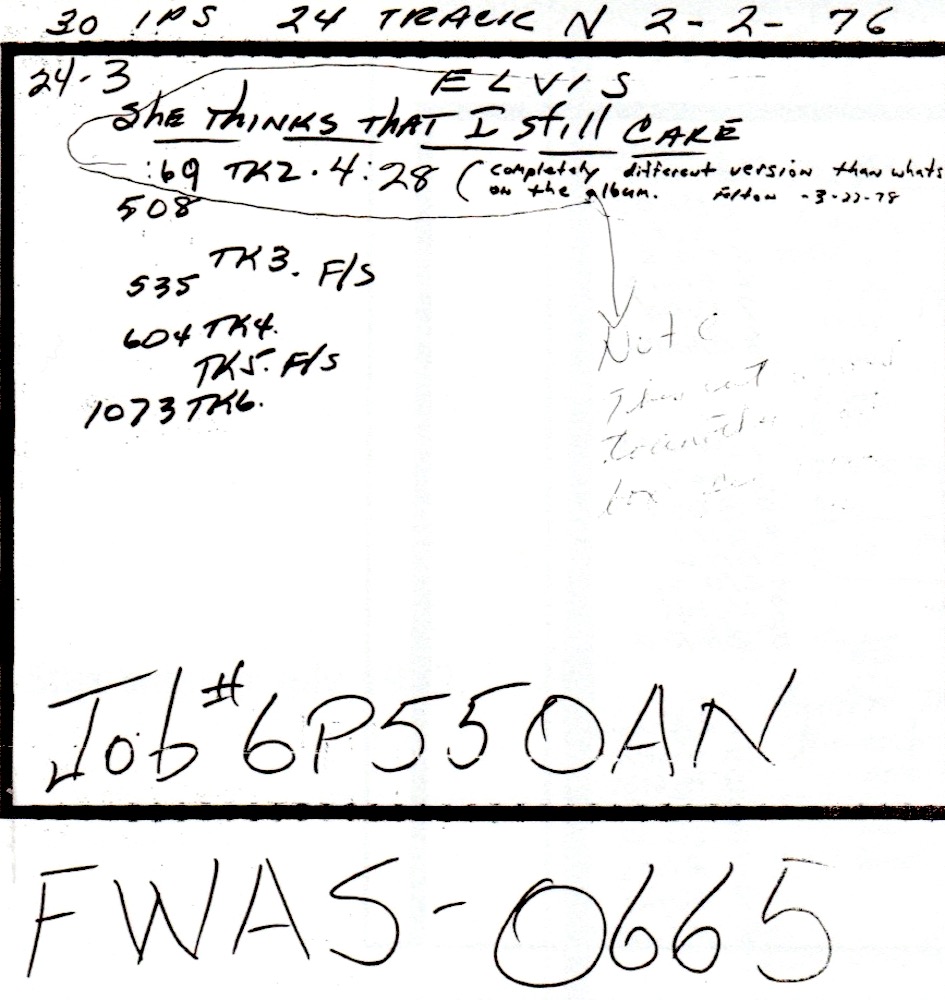 30 IPS 24 TRACK N 2-2-76
24-3 ELVIS
She THINKS that I still CARE
:69 TK2. 4:28 (completely different version than whats
on the album. Felton -3-22-78
508
535 TK3. F/S
604 TK4.
TK5. F/S
1073 TK6.
Note
Job # 6P550AN
FWAS-0665